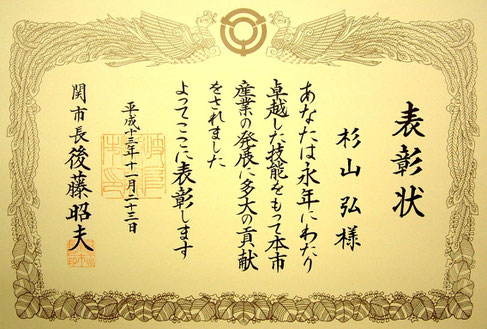 表彰状
杉山弘様
あなたは永年にわたり
卓越した技能をもって本市
産業の発展に多大の貢献
をされました
よってここに表彰します
平成十三年十一月二十三日
関市長後藤昭夫